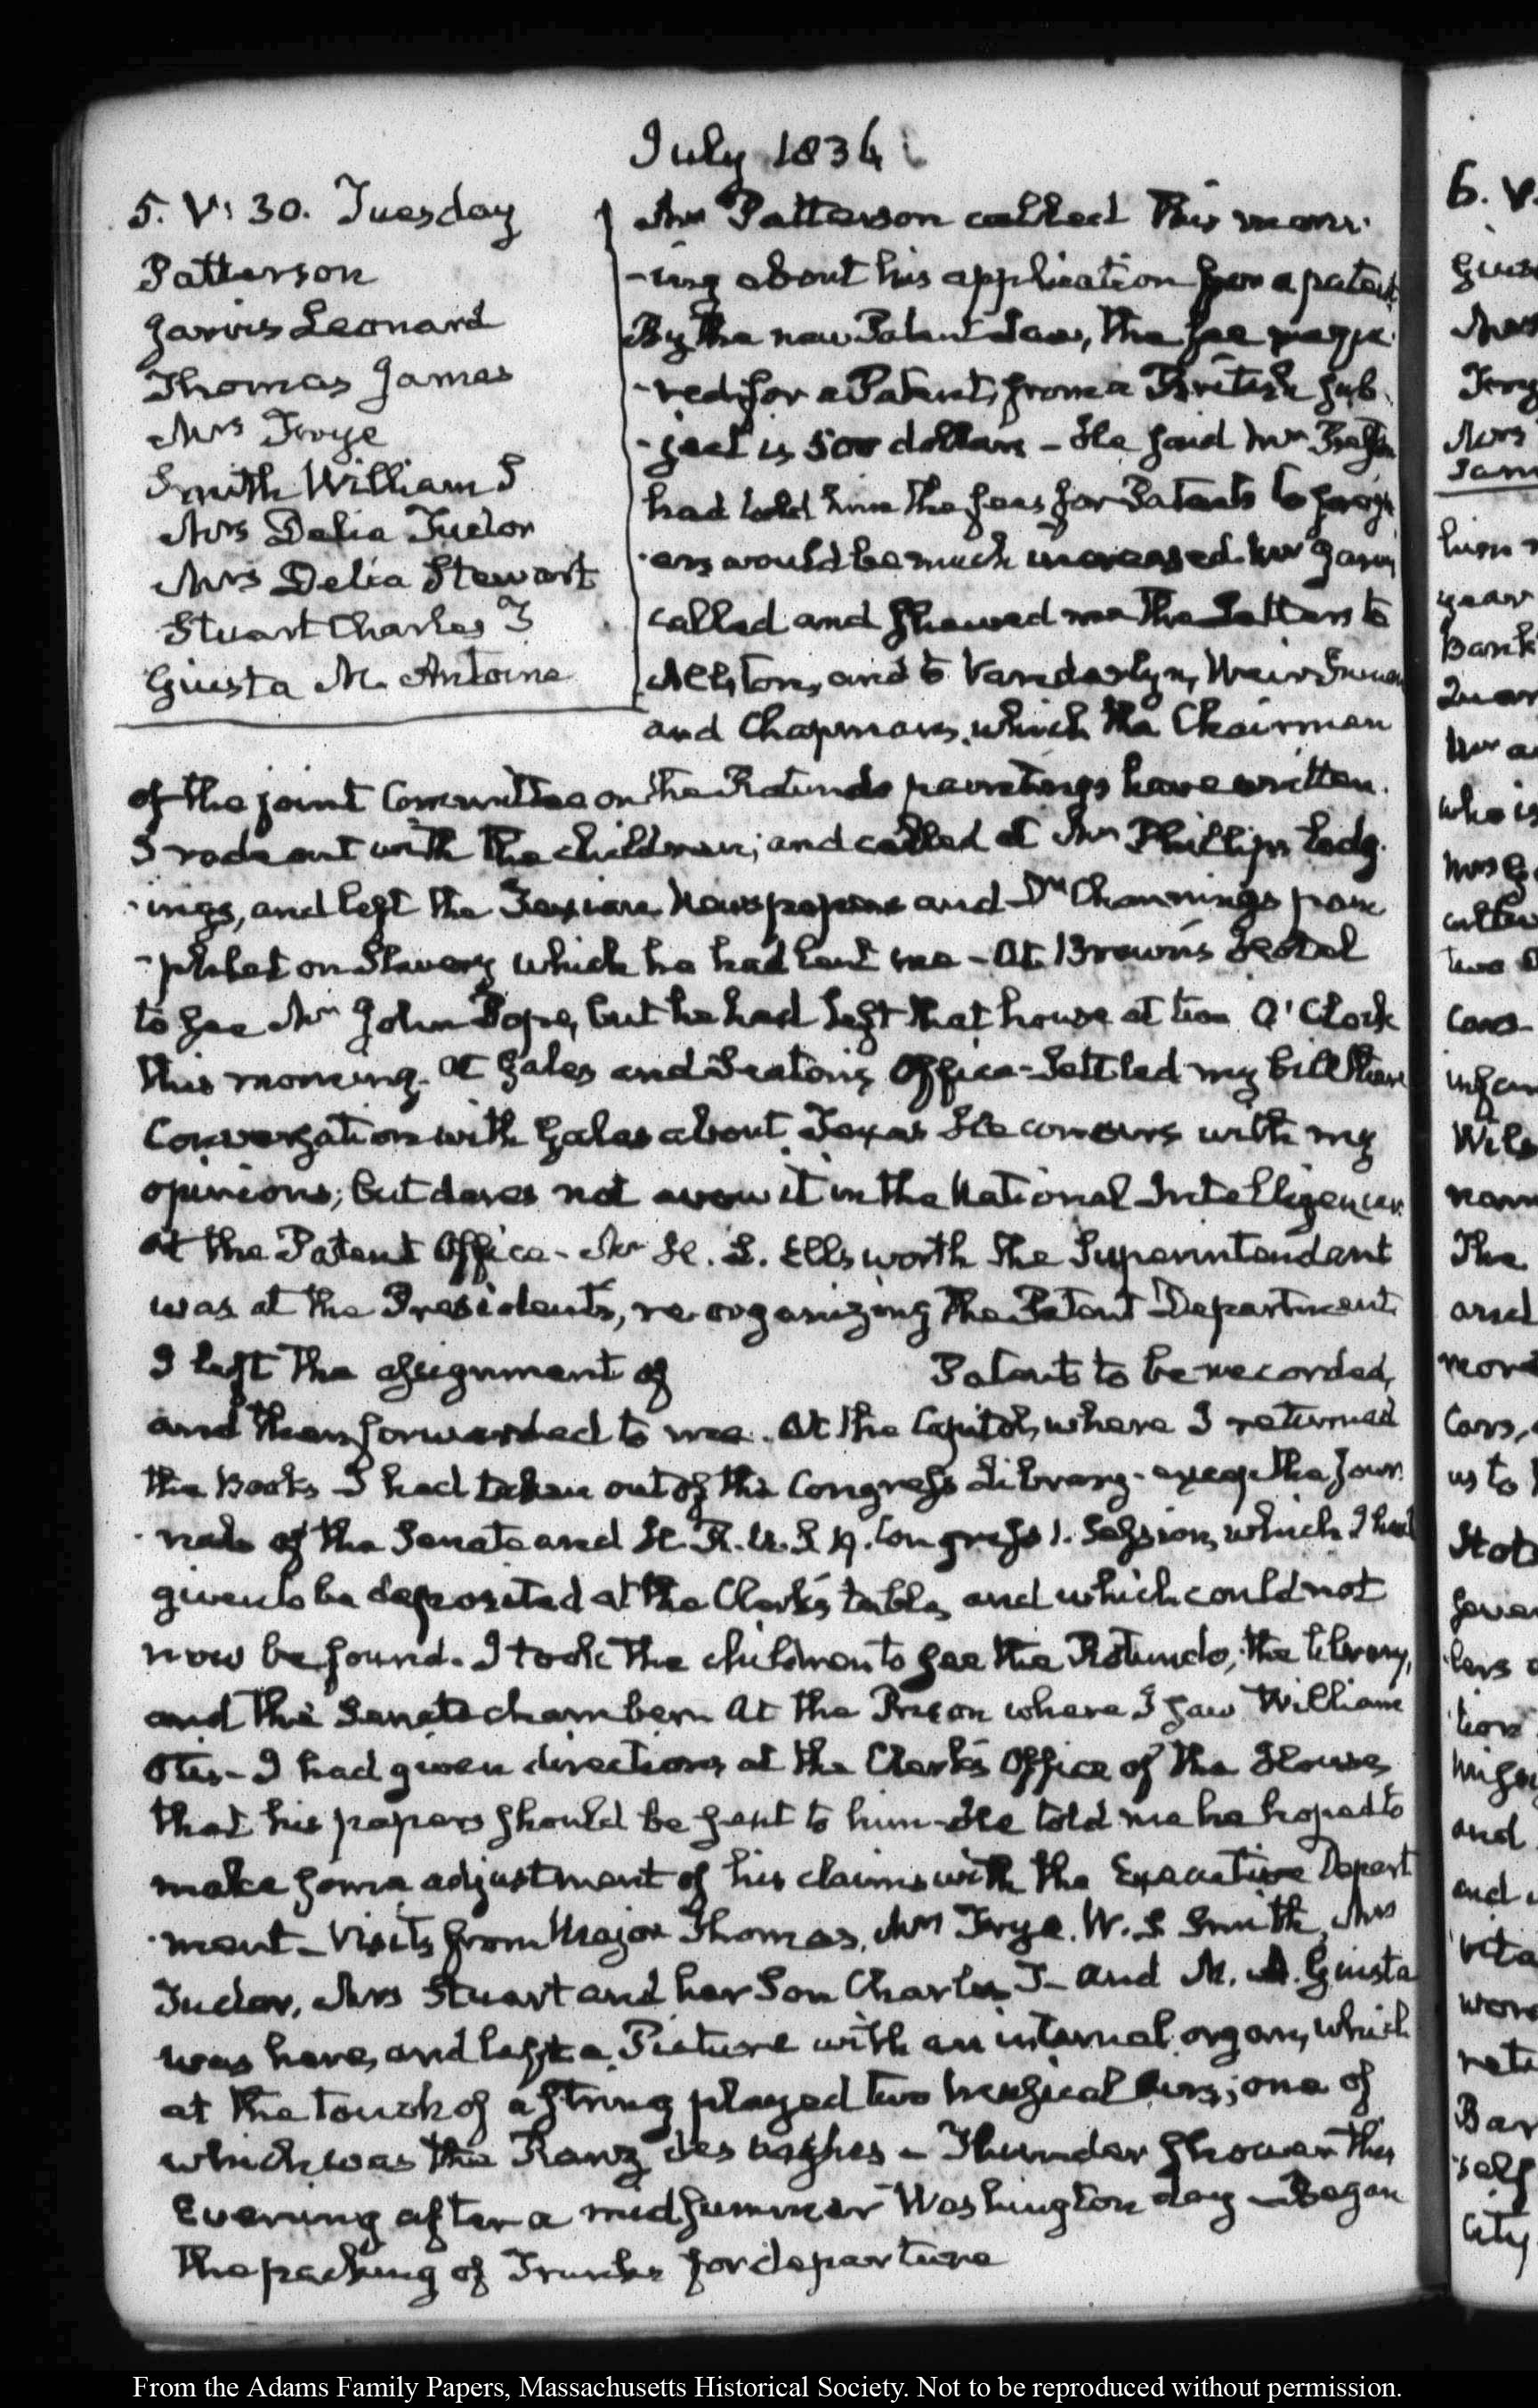 July 1836
5. V: 30. Tuesday
Patterson
Jarvis Leonard
Thomas James
Mrs Frye
Smith William S
Mrs Delia Tudor
Mrs Delia Stewart
Stuart Charles T
Giusta M. Antoine
Mr Patterson called this morn-
-ing about his application for a patent
By the new Patent Law, the fee requi-
-red for a Patent, from a British sub-
-ject is 500 dollars - He said Mr
had told him the fees for Patents to foreign
-ers would be much increased. Mr Jarvis
called and shewed me the Letters to
Allston, and to Vanderlyn, Weir
and Chapman, which the Chairman
of the joint Committee on the Rotunda paintings have written.
I rode out with the children; and called at Mr Phillips's lodg-
-ings, and left the Texian Newspapers and Dr Channing's pam
-phlet on Slavery which he had lent me - At Brown's Hotel
to see Mr John Pope, but he had left that house at two O'Clock
this morning. At Gales and Seaton's Office - Settled my bill there
Conversation with Gales about Texas He concurs with my
opinions; but dares not avow it in the National Intelligencer.
At the Patent Office - Mr H. L. Ellsworth the Superintendant
was at the Presidents, re-organizing the Patent Department
I left the assignment of Patents to be recorded,
and then forwarded to me. At the Capitol, where I returned
the Books I had taken out of the Congress Library - except the Jour
-nals of the Senate and H. R. U. S. Congress 1. Session, which I had
given to be deposited at the Clerk's table, and which could not
now be found. I took the children to see the Rotundo, the library,
and the Senate chamber. At the Prison where I saw William
Otis - I had given directions at the Clerk's Office of the House,
that his papers should be sent to him - He told me he hoped to
make some adjustment of his claims with the Executive Depart
-ment - Visits from Major Thomas, Mrs Frye, W. S Smith, Mrs
Tudor, Mrs Stuart and her Son Charles T - and M. A. Giusta
was here, and left a Picture with an internal organ, which
at the touch of a string played two musical airs; one of
which was the Ranz des vaches - Thunder shower this
Evening after a midsummer Washington day - Began
the packing of Trunks for departure
6. V
From the Adams Family Papers, Massachusetts Historical Society. Not to be reproduced without permission.